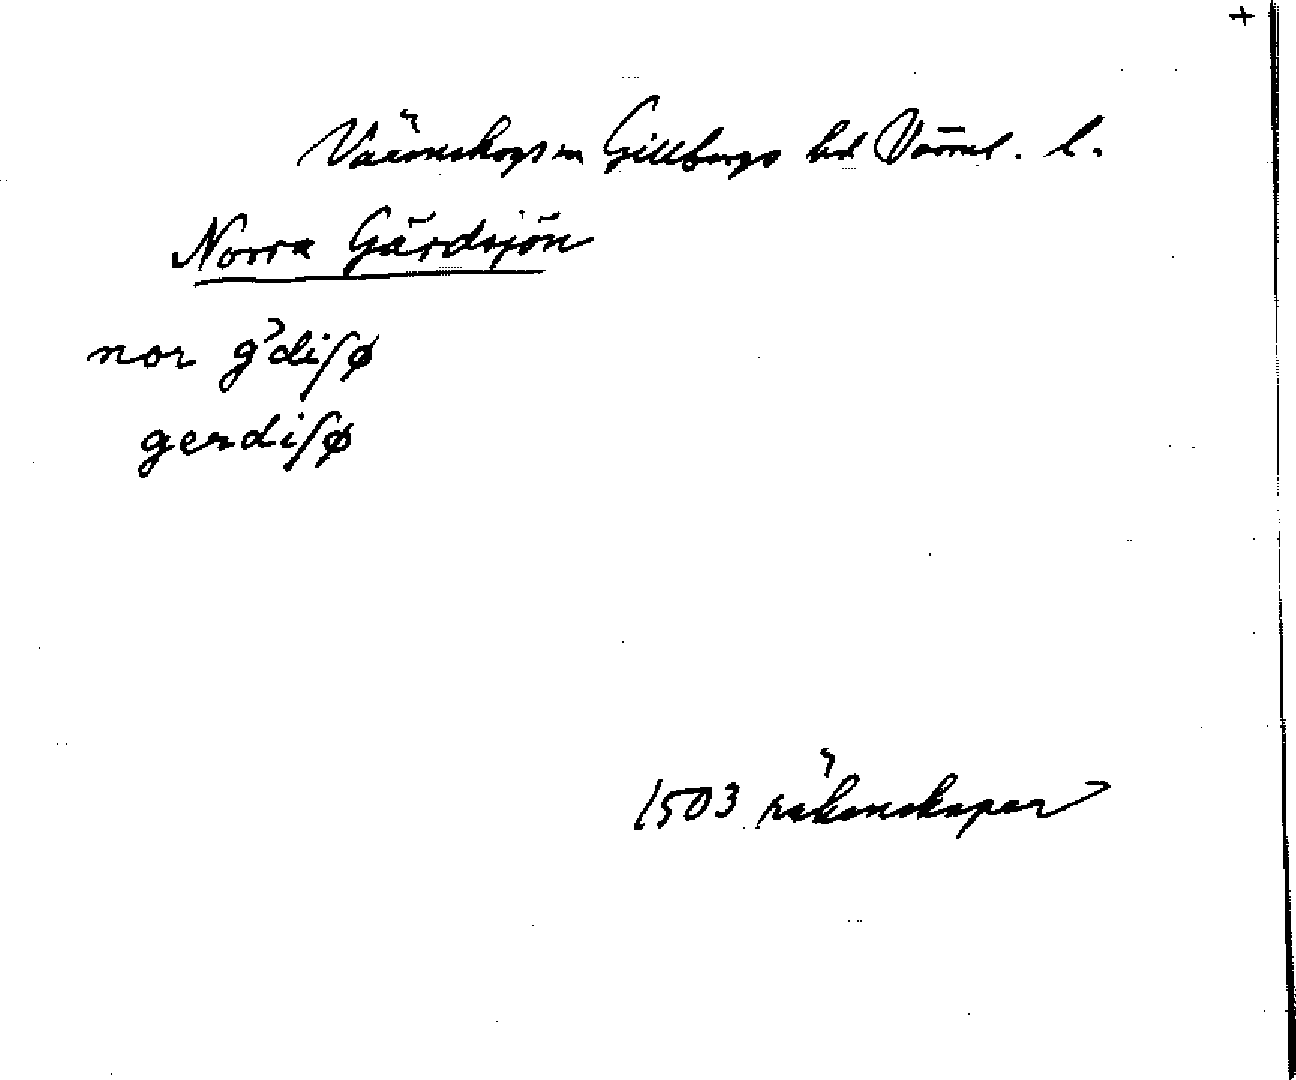 +
Värmskogs sn Gillbergs hd Värml. l.
Norra Gärdsjön
nor g'diſø
gerdiſø
1503 räkenskaper